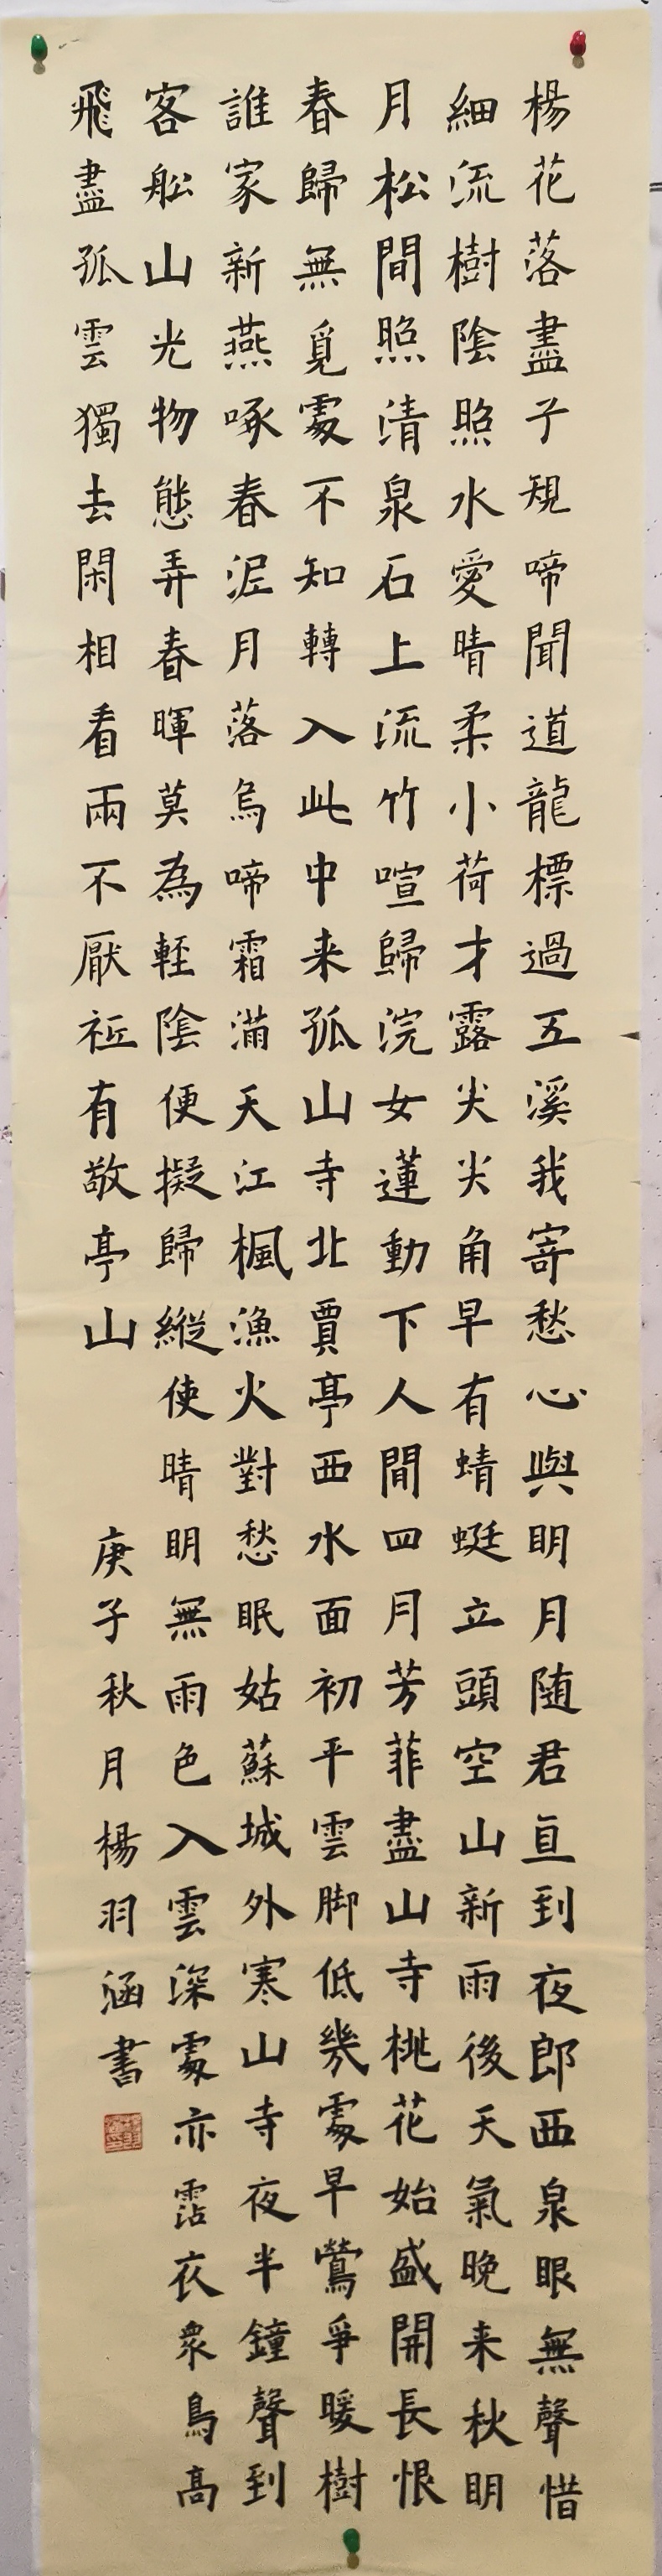 楊花落盡子規啼聞道龍標過五溪我寄愁心與明月随君直到夜郎西泉眼無聲惜
細流樹陰照水愛晴柔小荷才露尖尖角早有蜻蜓立頭空山新雨後天氣晚来秋明
月松間照清泉石上流竹喧歸浣女蓮動下人間四月芳菲盡山寺桃花始盛開長恨
春歸無覓處不知轉入此中来孤山寺北賈亭西水面初平雲脚低幾處早鶯爭暖樹
誰家新燕啄春泥月落烏啼霜滿天江楓漁火對愁眠姑蘇城外寒山寺夜半鐘聲到
客船山光物態弄春暉莫為輕陰便擬歸縱使晴明無雨色入雲深處亦霑衣衆鳥高
飛盡孤雲獨去閑相看兩不厭祗有敬亭山
庚子秋月楊羽涵書